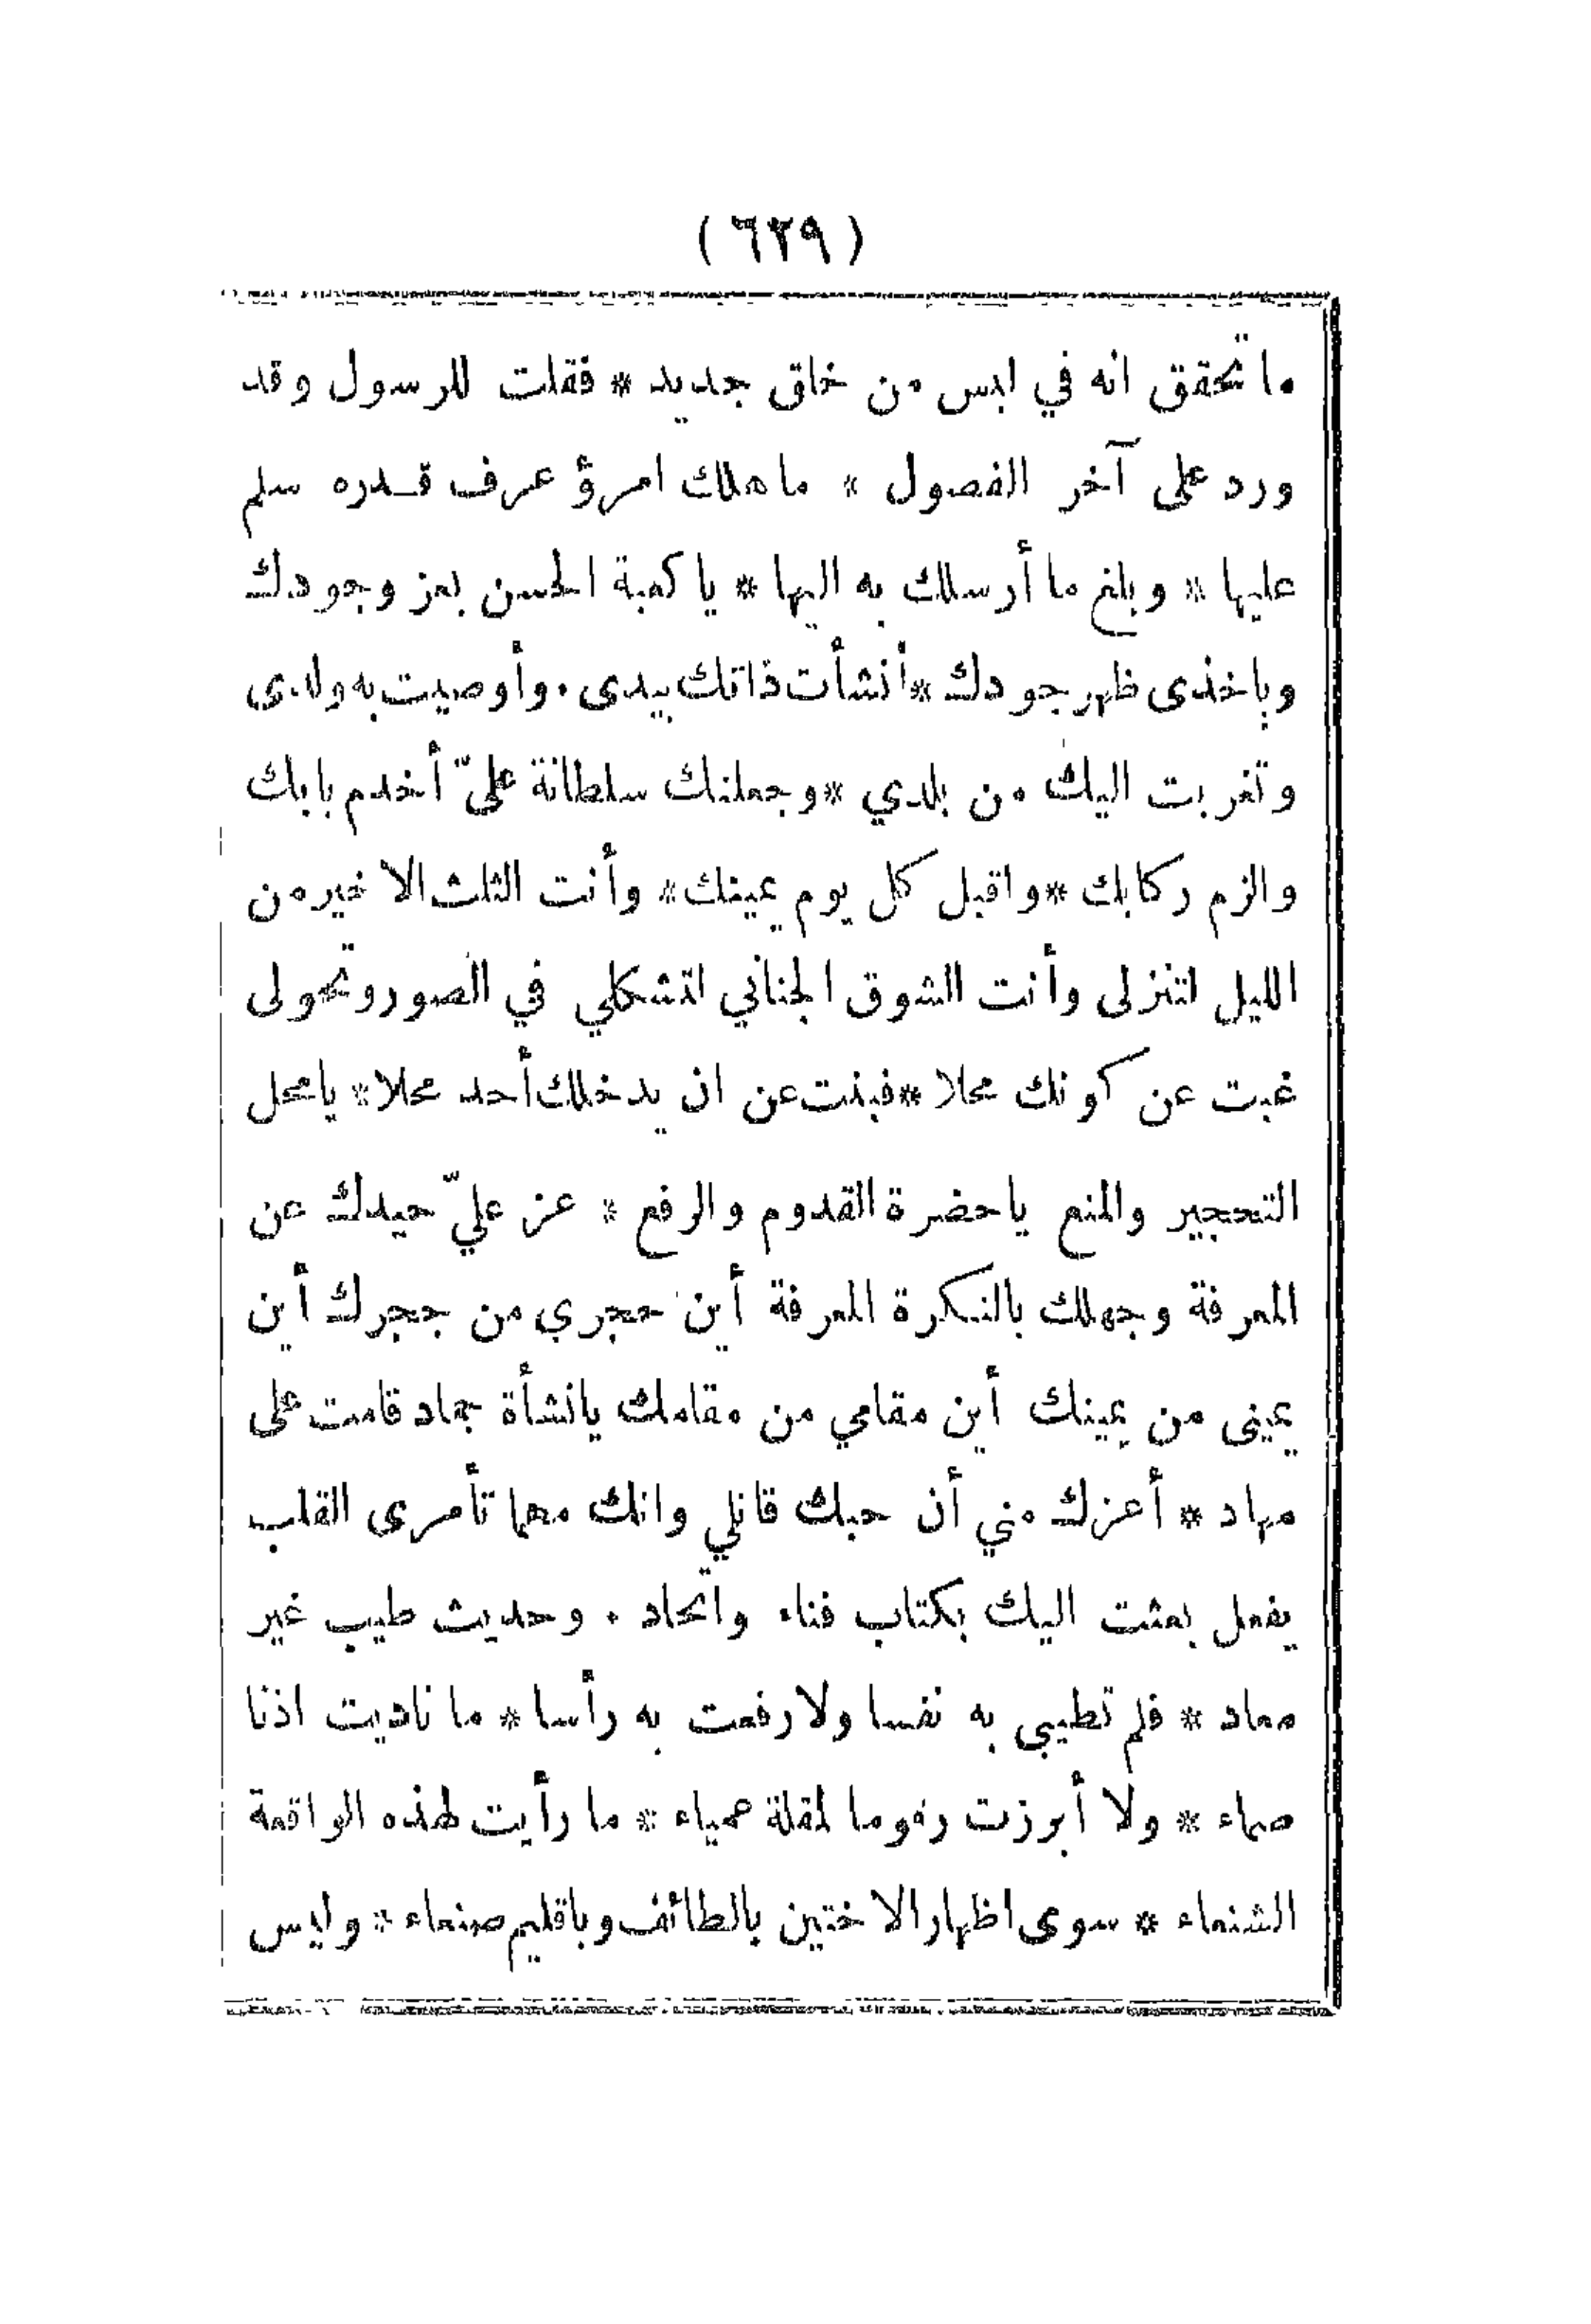 (٦٢٩)
ما تحقق انه في لبس من خلق جديد * فقلت للرسول وقد
ورد على آخر الفصول * ما هلك امرؤ عرف قدره سلم
عليها * وبلغ ما أرسلك به اليها * يا كعبة الحسن بعز وجودك
وباخذى ظهر جودك * أنشأت ذاتك بيدى . وأوصيت به ولدى
وتغربت اليك من بلدي * وجعلتك سلطانة علىّ أخدم بابك
والزم ركابك * واقبل كل يوم يمينك * وأنت الثلث الاخير من
الليل لتنزلى وأنت الشوق الجناني لتشكلي في الصور وتحولى
غبت عن كونك محلا * فبنت عن ان يدخلك أحد محلا * يا محل
التحجير والمنع يا حضرة القدوم والرفع * عز عليّ حيدك عن
المعرفة وجهلك بالنكرة المعرفة أين حجري من حجرك أين
يمينى من يمينك أين مقامي من مقامك يانشأة جماد قامت على
مهاد * أعزك مني أن حبك قاتلي وانك مهما تأمرى القلب
يفعل بعثت اليك بكتاب فناء واتحاد . وحديث طيب غير
معاد * فلم تطيبي به نفسا ولا رفعت به رأسا * ما ناديت اذنا
صماء * ولا أبرزت رقوما لمقلة عمياء * ما رأيت لهذه الواقعة
الشنعاء * سوى اظهار الاختين بالطائف وباقليم صنعاء * وليس